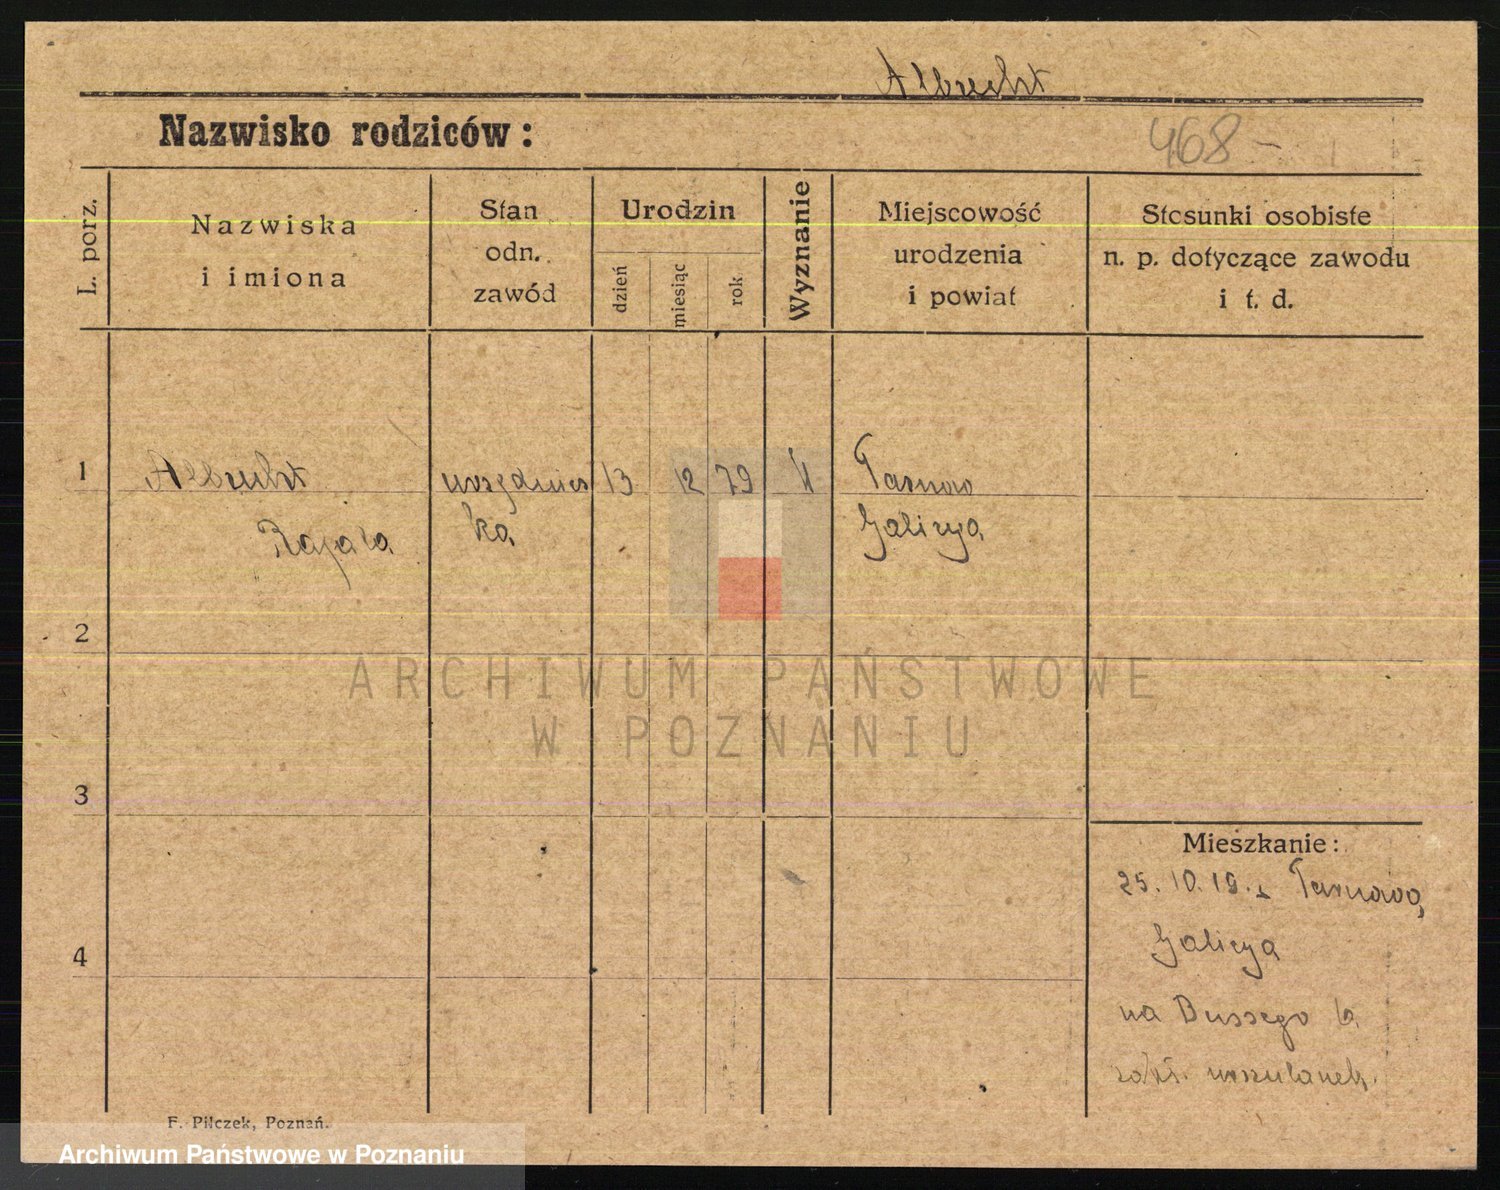 Albrecht
Nazwisko rodziców:
468 -
L. porz.
Nazwiska
i imiona
Stan
odn.
zawód
Urodzin
dzień
miesiąc
rok
Wyznanie
Miejscowość
urodzenia
i powiat
Stosunki osobiste
n. p. dotyczące zawodu
i t. d.
1 Albrecht urzędnicz 13 12 79 k Tarnow
ka Galicya
2
ARCHIWUM PAŃSTWOWE
W POZNANIU
3
Mieszkanie:
25. 10. 19. z Tarnowa,
4
Galicya
na Bussego
zakł. urszulanek.
F. Pilczek, Poznań.
Archiwum Państwowe w Poznaniu